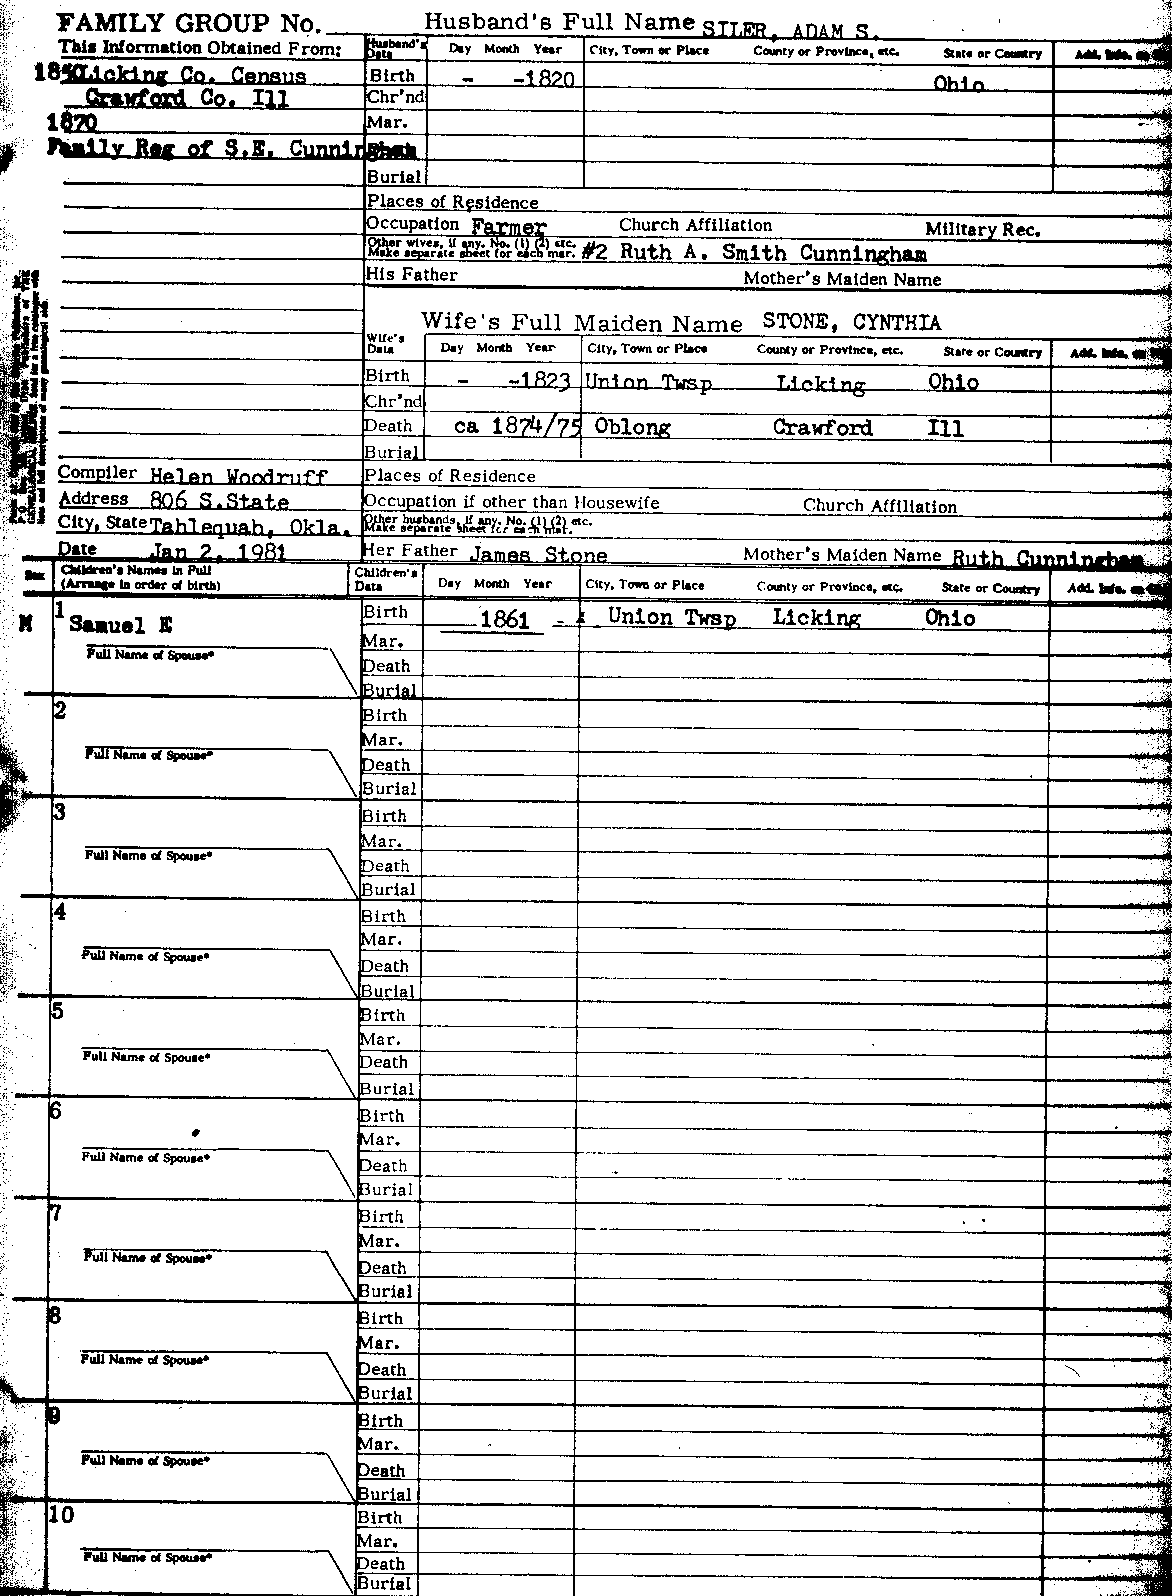 FAMILY GROUP No. Husband's Full Name SILER, ADAM S.
This Information Obtained From: Husband's Data Day Month Year City, Town or Place County or Province, etc. State or Country Add. Info. on
Licking Co. Census Birth - -1820 Ohio
Crawford Co. Ill Chr'nd
1870 Mar.
Family Reg of S.E. Cunningham
Burial
Places of Residence
Occupation Farmer Church Affiliation Military Rec.
Other wives, if any. No. (1) (2) etc.
Make separate sheet for each mar. #2 Ruth A. Smith Cunningham
His Father Mother's Maiden Name
Wife's Full Maiden Name STONE, CYNTHIA
Wife's Data Day Month Year City, Town or Place County or Province, etc. State or Country Add. Info. on
Birth - -1823 Union Twsp Licking Ohio
Chr'nd
Death ca 1874/75 Oblong Crawford Ill
Burial
Compiler Helen Woodruff Places of Residence
Address 806 S.State Occupation if other than Housewife Church Affiliation
City, State Tahlequah, Okla. Other husbands, if any. No. (1) (2) etc.
Make separate sheet for each mar.
Date Jan 2, 1981 Her Father James Stone Mother's Maiden Name Ruth Cunningham
Sex Children's Names in Full
(Arrange in order of birth) Children's Data Day Month Year City, Town or Place County or Province, etc. State or Country Add. Info. on
M 1 Samuel E Birth 1861 - Union Twsp Licking Ohio
Mar.
Full Name of Spouse*
Death
Burial
2 Birth
Mar.
Full Name of Spouse*
Death
Burial
3 Birth
Mar.
Full Name of Spouse*
Death
Burial
4 Birth
Mar.
Full Name of Spouse*
Death
Burial
5 Birth
Mar.
Full Name of Spouse*
Death
Burial
6 Birth
Mar.
Full Name of Spouse*
Death
Burial
7 Birth
Mar.
Full Name of Spouse*
Death
Burial
8 Birth
Mar.
Full Name of Spouse*
Death
Burial
9 Birth
Mar.
Full Name of Spouse*
Death
Burial
10 Birth
Mar.
Full Name of Spouse*
Death
Burial